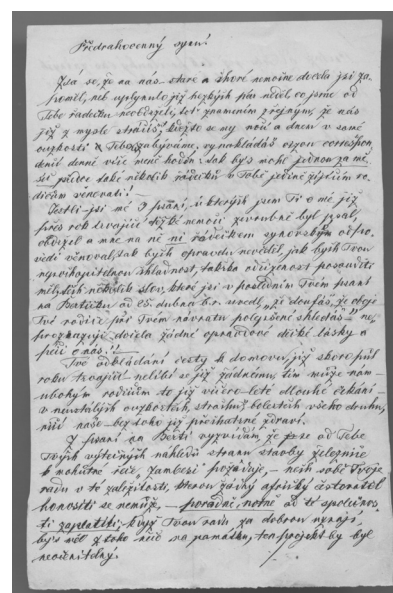 Předrahocenný synu!
Zdá se, že na nás stare a choré nemocné docela jsi za-
poměl, neb uplynulo již hezkých pár neděl co jsme od
Tebe řádečku neobdrželi, toť znamením zřejmým, že nás
již z mysle ztrácíš, kdežto se my noci a dnem v samé
ouzkosti s Tebou zabýváme, vy nakládáš svou correspon-
denci denně více méně hodin. Jak bys mohl jednou za mě-
síc půlce také několik řádečků v Tobě jedině žijícím ro-
dičům věnovati!
Jestli jsi mé 2 psaní, v kterých jsem Ti o mé již
přes rok trvající těžké nemoci zevrubně byl psal,
obdržel a mne na ně ni řádečkem synovským odpo-
vědi věnoval, tak bych opravdu nevěděl, jak bych Tvou
posouditi
několik slov, které jsi v posledním Tvém psaní
na Bertičku od 25. dubna b.r. uvedl, "že doufáš, že oboje
Tvé rodiče při Tvém navratu pohyřbené shledáš" ne-
prozrazuje docela žádné opravdové dětské lásky a
péči o nás!!
Tvé odkládání cesty k domovu, již skoro půl
roku trvající nelíbí se již žádnému, tím může nám
ubohým rodičům to již víceleté dlouhé čekání
v neustálých ouzkostech, strašných bolestech všeho druhu,
ničí naše bez toho již přechatrné zdraví.
Z psaní na Berti vyzvídám, že prse od Tebe
Tvých výtečných náhledů stranu stavby železnice
k Zambesi požaduje, – nech sobě Tvoje
radu v té záležitosti, kterou žádný africký cestovatel
honositi se nemůže, – pořádně, notně od té společnos-
ti zaplatiti; když Tvou radu za dobrou uznají,
bys měl z toho něco na památku, ten projekt by byl
neocenitelný.